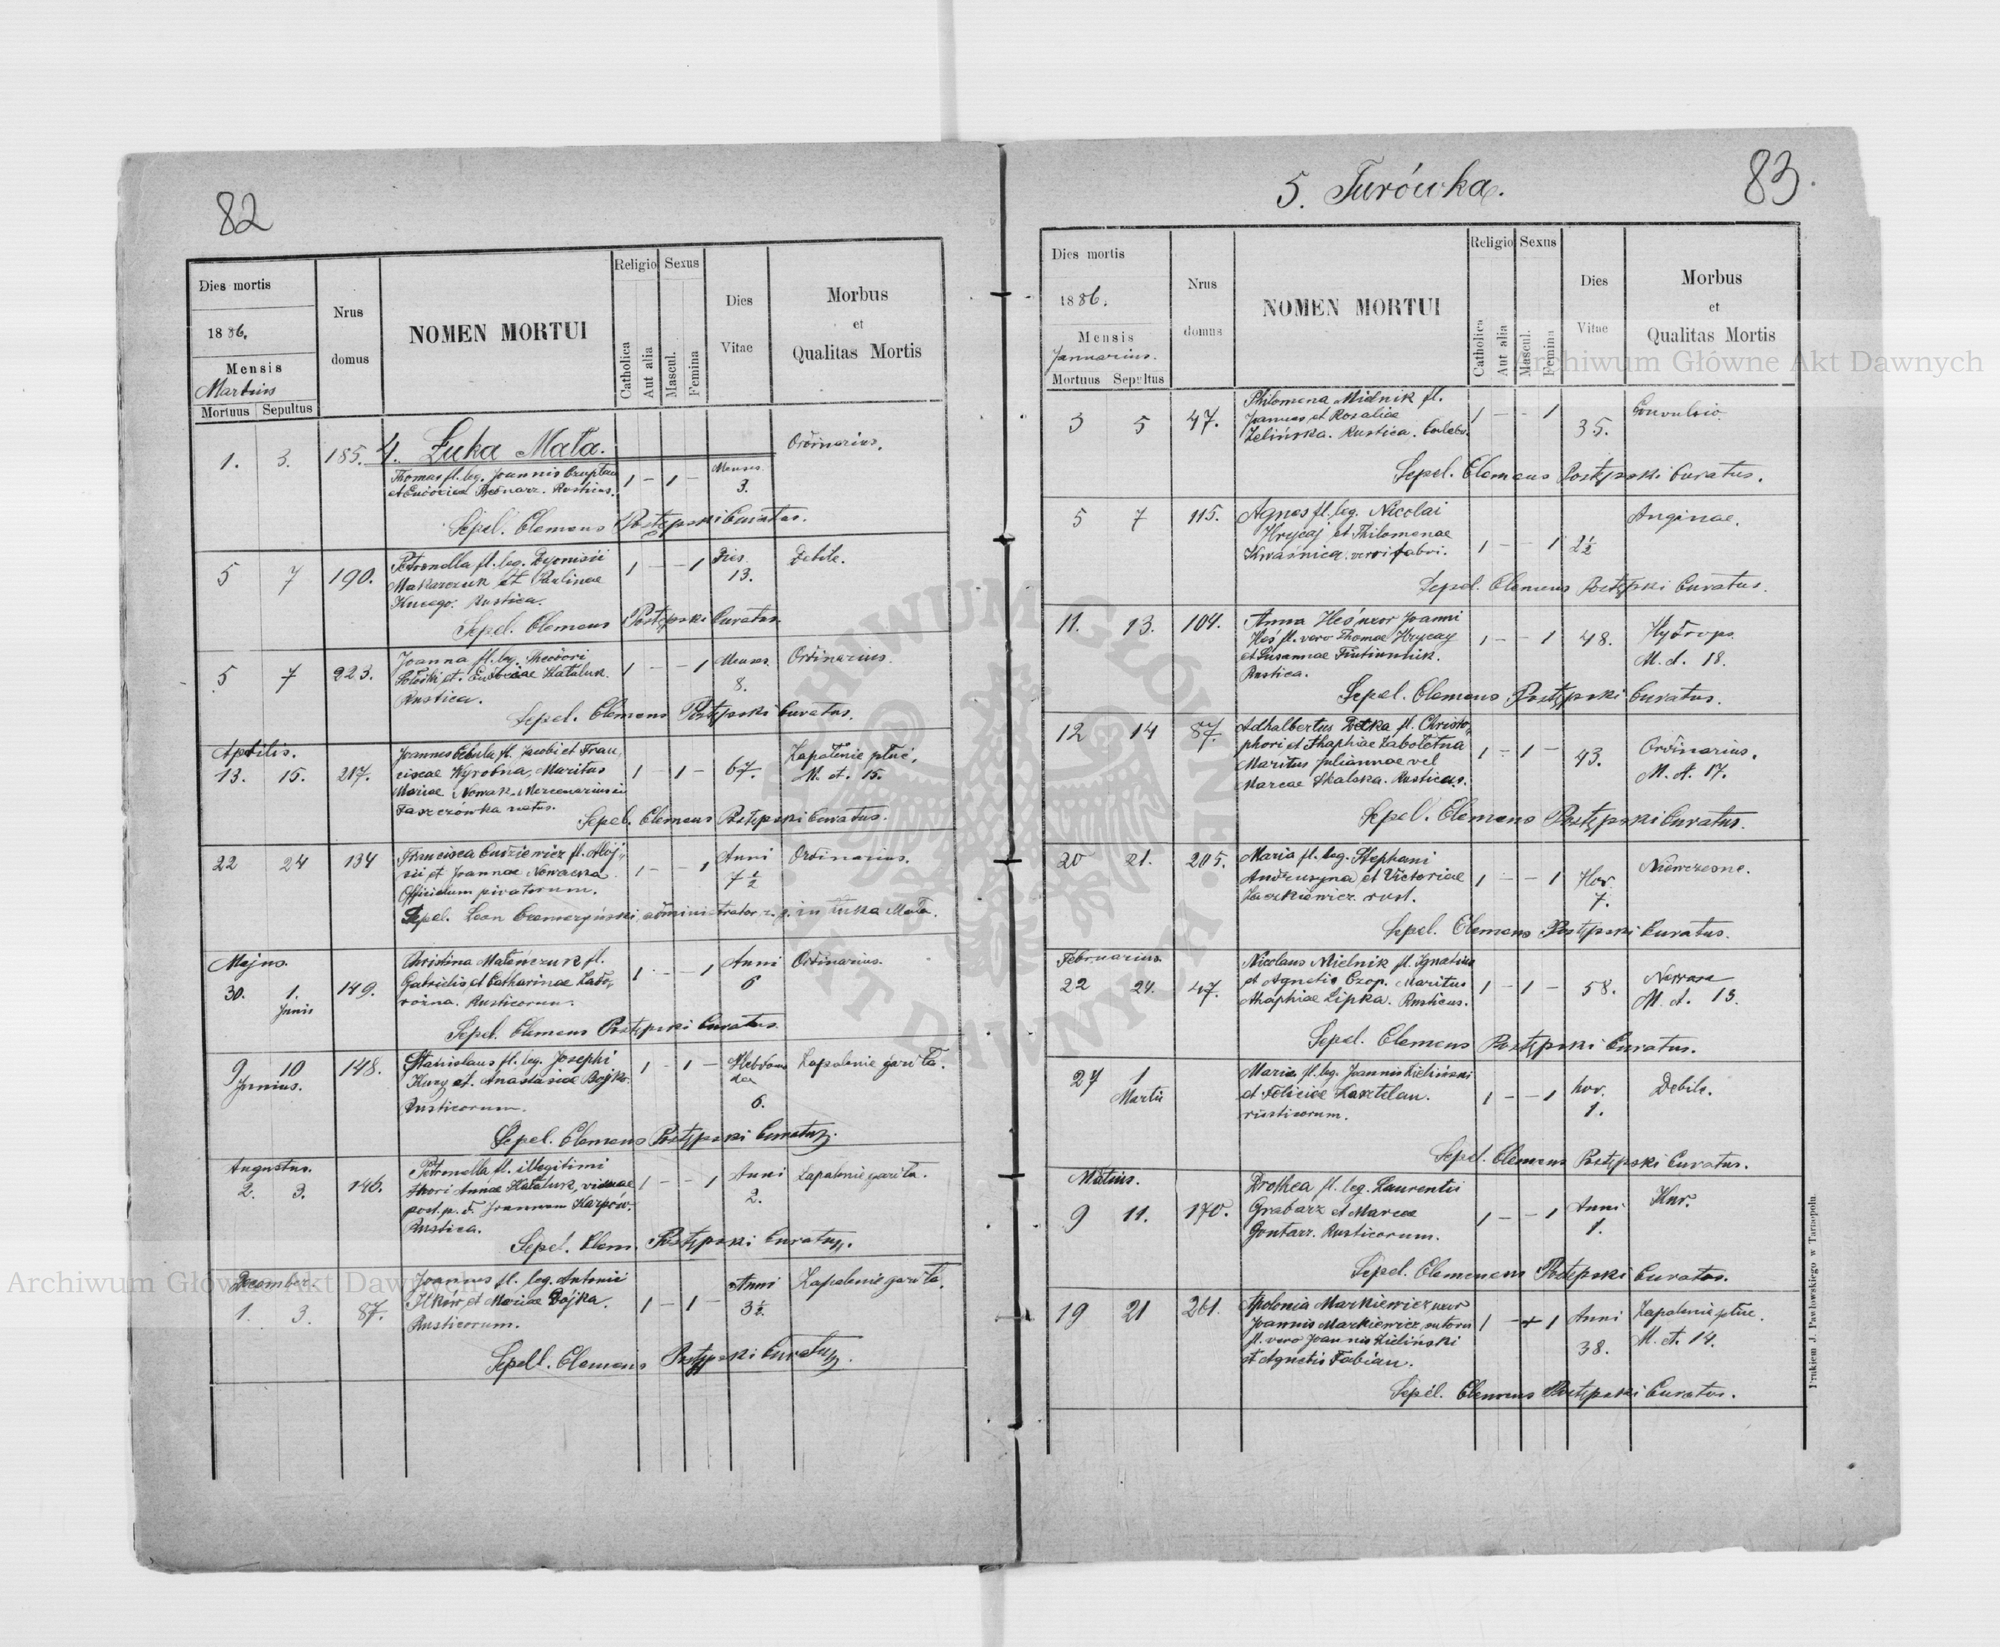 82
Dies mortis
1886.
Mensis
Martius
Mortuus Sepultus
Nrus
domus
NOMEN MORTUI
Religio
Catholica
Aut alia
Sexus
Mascul.
Femina
Dies
Vitae
Morbus
et
Qualitas Mortis
4. Łuka Mała.
1. 3. 185. Ordinarius.
Thomas fl. leg. Joannis
et Bednarz. Rusticus. 1 - 1 - Menses 3.
Sepel. Clemens Postępski Curatus.
5 7 190. Petronella fl. leg. Dyonisii
Makarczuk et Paulinae
Rustica. 1 - - 1 Dies 13. Debile.
Sepel. Clemens Postępski Curatus.
5 7 223. Joanna fl. leg. Theodori
et Kataluk.
Rustica. 1 - - 1 Menses 8. Ordinarius.
Sepel. Clemens Postępski Curatus.
Aprilis.
13. 15. 217. Joannes Cebula fl. Jacobi et Fran,
ciscae Wyrobna, Maritus
Mariae Nowak. Mercenarius in
Faszczówka natus. 1 - 1 - 67. Zapalenie płuc,
M. et. 15.
Sepel. Clemens Postępski Curatus.
22 24 134 Francisca Cudziewicz fl. Aloj,
sii et Joannae Nowacka
Officialum privatorum. 1 - - 1 Anni 7 1/2 Ordinarius.
Sepel. Leon administrator r. g. in Łuka Mała.
Majus.
30. 1. Junii 149. Christina Matenczuk fl.
Gabrielis et Catharinae
Rusticorum. 1 - - 1 Anni 6 Ordinarius.
Sepel. Clemens Postępski Curatus.
9 10 148.
Junius.
Stanislaus fl. leg. Josephi
Kuzy et Anastasiae Bojko.
Rusticorum. 1 - 1 - Hebdoma
dea
6. Zapalenie gardła.
Sepel. Clemens Postępski Curatus.
Augustus.
2. 3. 146. Petronella fl. illegitimi
thori Annae Kataluk, viduae
post. p. d. Joannem Karpów.
Rustica. 1 - - 1 Anni 2. Zapalenie gardła.
Sepel. Clem. Postępski Curatus.
December.
1. 3. 87. Joannes fl. leg. Antonii
Ilków et Mariae Bojka.
Rusticorum. 1 - 1 - Anni 3 1/2. Zapalenie gardła.
Sepell. Clemens Postępski Curatus.
83.
5. Turówka.
Dies mortis
1886.
Mensis
Januarius.
Mortuus Sepultus
Nrus
domus
NOMEN MORTUI
Religio
Catholica
Aut alia
Sexus
Mascul.
Femina
Dies
Vitae
Morbus
et
Qualitas Mortis
3 5 47. Philomena Mielnik fl.
Joannes et Rosaliae
Zelińska. Rustica. 1 - - 1 35. Convulsio
Sepel. Clemens Postępski Curatus.
5 7 115. Agnes fl. leg. Nicolai
Hrycaj et Philomenae
Kwaśnica. 1 - - 1 2 1/2 Anginae.
Sepel. Clemens Postępski Curatus.
11. 13. 104. Anna Heś uxor Joanni
Heś fl. vero Thomae Hrycay
et Susannae
Rustica. 1 - - 1 48. Hydrops.
M. d. 18.
Sepel. Clemens Postępski Curatus.
12 14 87. Adhalbertus fl. Christo,
phori et Zaboletna
Maritus Juliannae vel
Mareae Skalska. Rusticus. 1 - 1 - 43. Ordinarius.
M. d. 17.
Sepel. Clemens Postępski Curatus.
20 21. 205. Maria fl. leg. Stephani
et Victoriae
rust. 1 - - 1 Hor. 7.
Sepel. Clemens Postępski Curatus.
Februarius.
22 24. 47. Nicolaus Mielnik fl. Ignatius
et Agnetis Czop. Maritus
Lipka. Rusticus. 1 - 1 - 58. Nervosa
M. d. 13.
Sepel. Clemens Postępski Curatus.
27 1 Martii Maria fl. leg. Joannis Zieliński
et Feliciae Kasztelan.
rusticorum. 1 - - 1 hor. 1. Debile.
Sepel. Clemens Postępski Curatus.
Matius.
9 11. 170. Drothea fl. leg. Laurentii
Grabarz et Mareae
Gontarz. Rusticorum. 1 - - 1 Anni 1.
Sepel. Clemenens Postepski Curatus.
19 21 261. Apolonia Markiewicz uxor
Joannis Markiewicz, sutoris
fl. vero Joannis Zieliński
et Agnetis Fabian. 1 - + 1 Anni 38. Zapalenie płuc.
M. d. 14.
Sepel. Clemens Postępski Curatus.
Drukiem J. Pawłowskiego w Tarnopolu.
Archiwum Główne Akt Dawnych
Archiwum Główne Akt Dawnych
ARCHIWUM GŁÓWNE AKT DAWNYCH